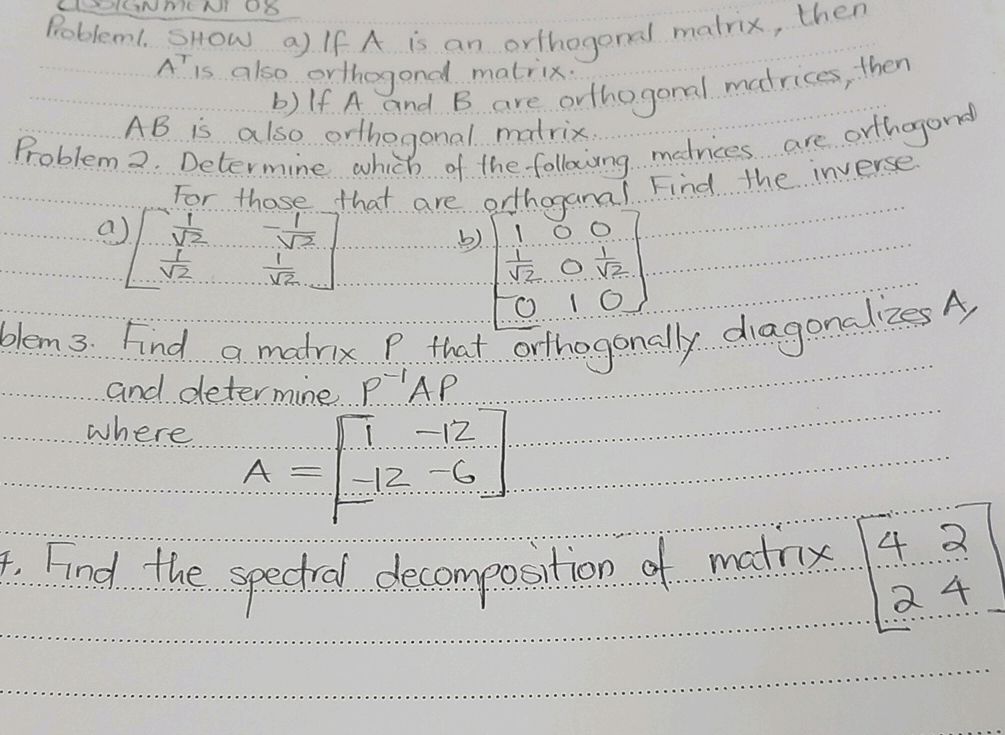 ASSIGNMENT 08
Problem1. SHOW a) If A is an orthogonal matrix, then
Aᵀ is also orthogonal matrix.
b) If A and B are orthogonal matrices, then
AB is also orthogonal matrix.
Problem 2. Determine which of the following matrices are orthogonal
For those that are orthogonal Find the inverse
a) [1/√2 -1/√2
1/√2 1/√2]
b) [1 0 0
1/√2 0 1/√2
0 1 0]
blem 3. Find a matrix P that orthogonally diagonalizes A,
and determine P⁻¹AP
where
A = [1 -12
-12 -6]
4. Find the spectral decomposition of matrix [4 2
2 4]